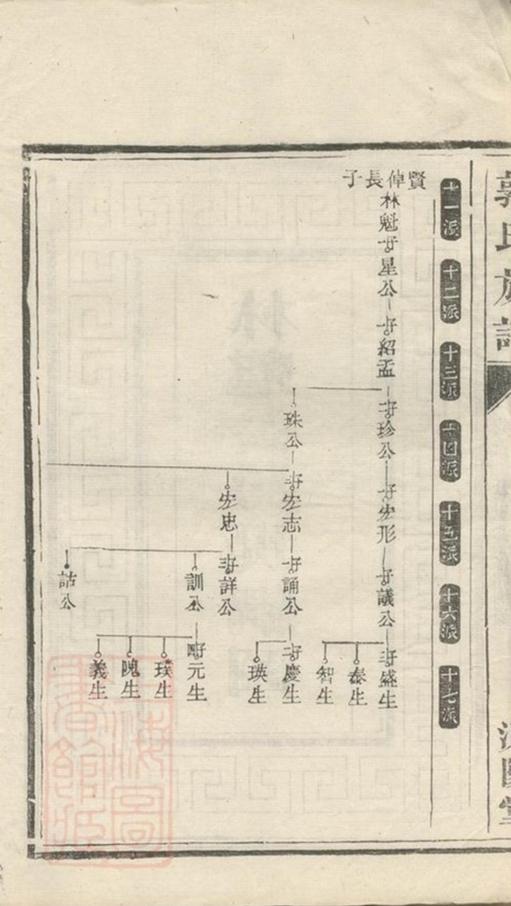 郭氏族譜
十一派
十二派
十三派
十四派
十五派
十六派
十七派
賢倬長子
林魁 子 星公 子 紹孟 子 珍公 子 宏形 子 議公 子 盛生
泰生
智生
珠公 子 宏志 子 誦公 子 慶生
瑛生
宏忠 子 詳公
訓公 子 元生
瑛生
瑰生
義生
詁公